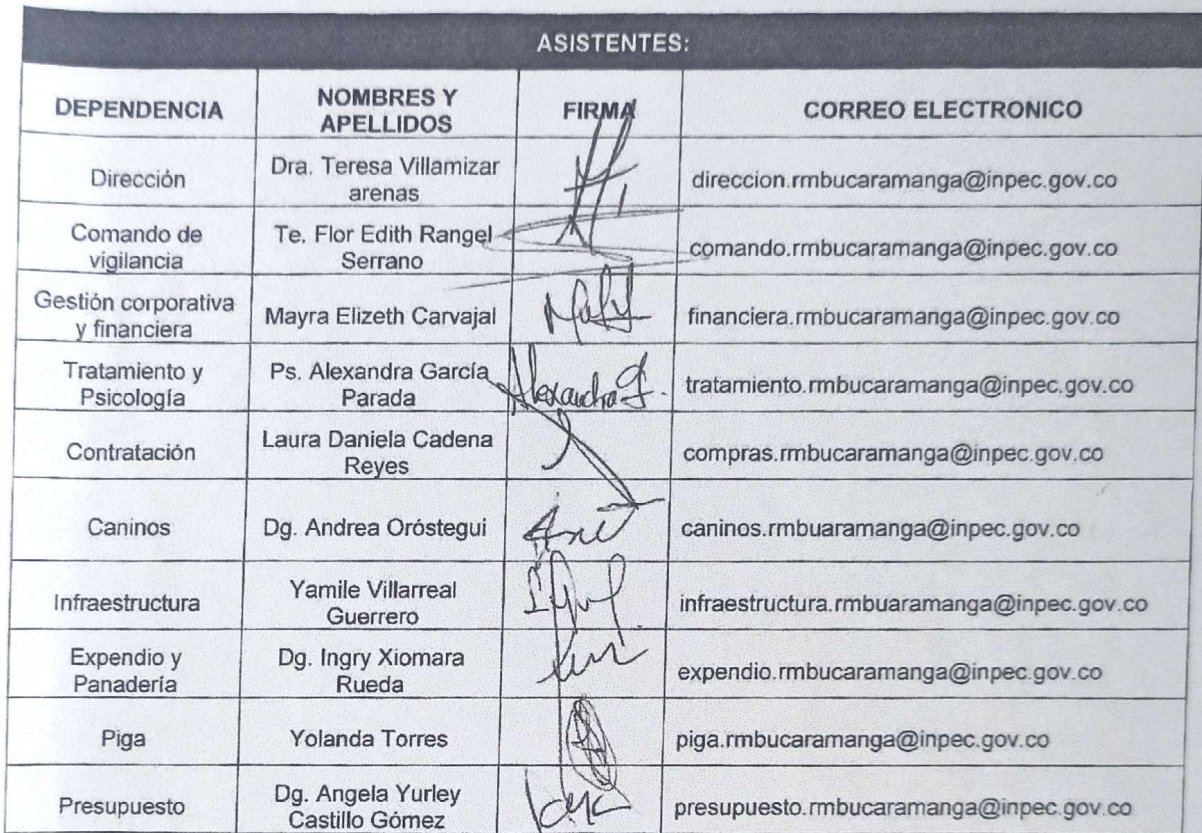 ASISTENTES:
DEPENDENCIA
NOMBRES Y
APELLIDOS
FIRMA
CORREO ELECTRONICO
Dirección
Dra. Teresa Villamizar
arenas
direccion.rmbucaramanga@inpec.gov.co
Comando de
vigilancia
Te. Flor Edith Rangel
Serrano
comando.rmbucaramanga@inpec.gov.co
Gestión corporativa
y financiera
Mayra Elizeth Carvajal
financiera.rmbucaramanga@inpec.gov.co
Tratamiento y
Psicología
Ps. Alexandra García
Parada
Alexandra G.
tratamiento.rmbucaramanga@inpec.gov.co
Contratación
Laura Daniela Cadena
Reyes
compras.rmbucaramanga@inpec.gov.co
Caninos
Dg. Andrea Oróstegui
caninos.rmbuaramanga@inpec.gov.co
Infraestructura
Yamile Villarreal
Guerrero
infraestructura.rmbuaramanga@inpec.gov.co
Expendio y
Panadería
Dg. Ingry Xiomara
Rueda
expendio.rmbucaramanga@inpec.gov.co
Piga
Yolanda Torres
piga.rmbucaramanga@inpec.gov.co
Presupuesto
Dg. Angela Yurley
Castillo Gómez
presupuesto.rmbucaramanga@inpec.gov.co